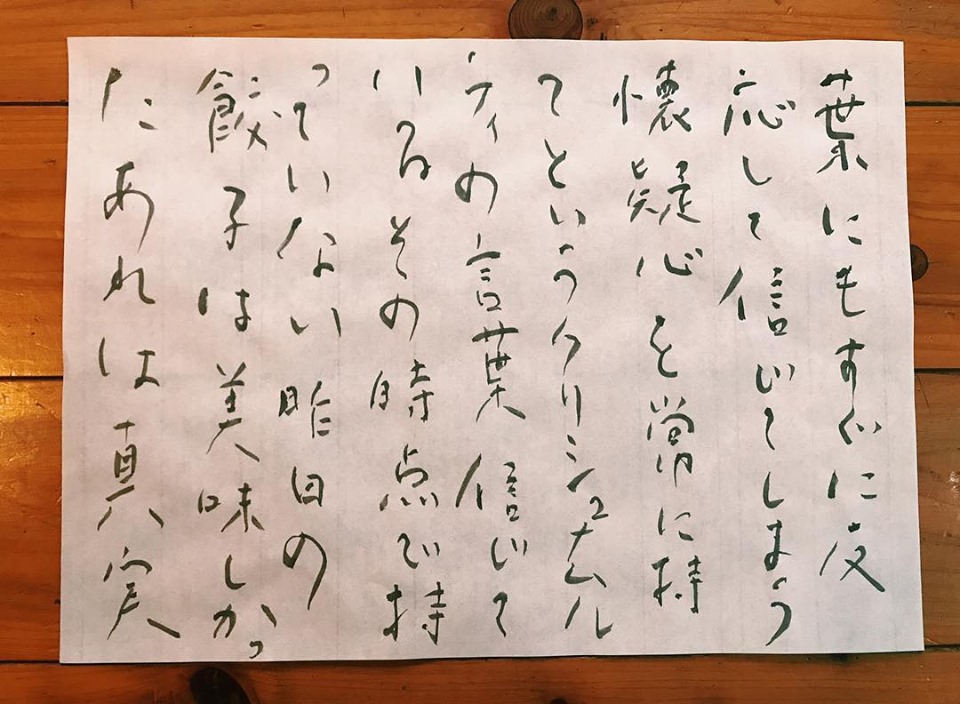 葉にもすぐに反
応して信じてしまう
懐疑心を常に持
てというクリシュナムル
ティの言葉信じて
いるその時点で持
っていない昨日の
餃子は美味しかっ
たあれは真実